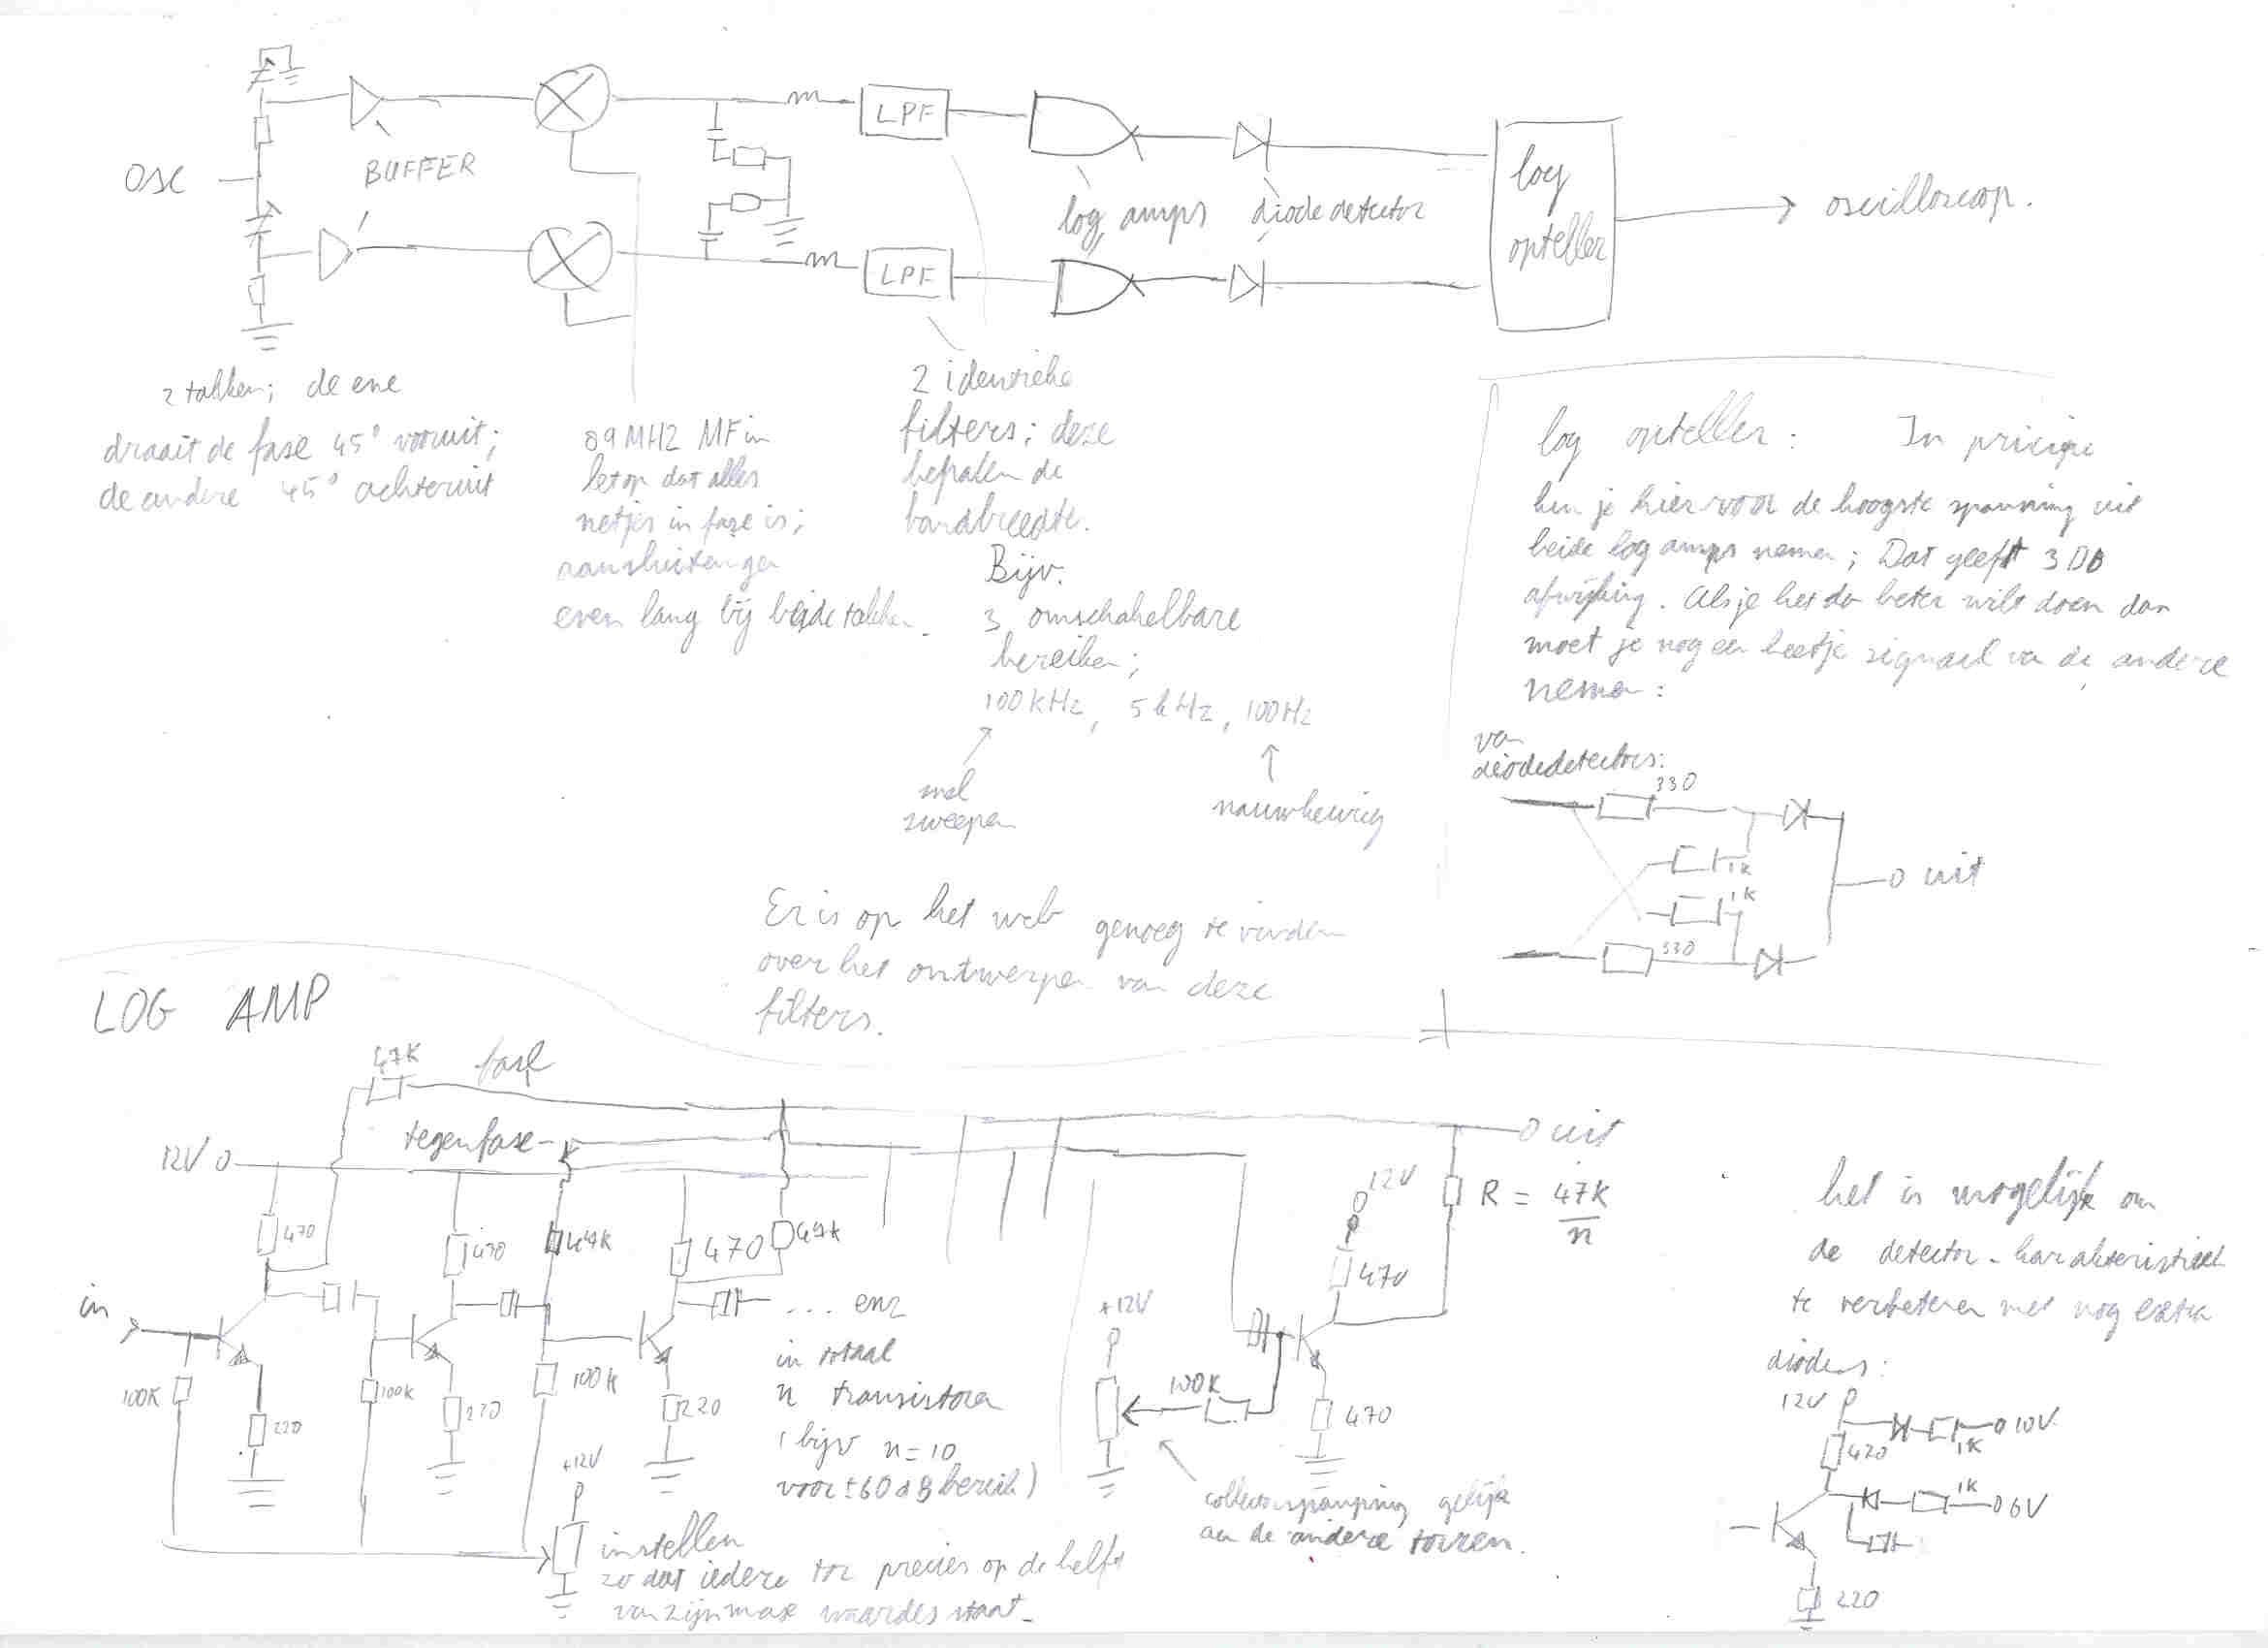 OSC
BUFFER
LPF
LPF
log amps
diode detector
log
opteller
oscilloscoop.
2 takken; de ene
draait de fase 45° vooruit;
de andere 45° achteruit
89 MHZ MF in
let op dat alles
netjes in fase is;
aansluitingen
even lang bij beide takken.
2 identieke
filters; deze
bepalen de
bandbreedte.
Bijv.
3 omschakelbare
bereiken;
100 kHz, 5 kHz, 100 Hz
snel
zweepen
nauwkeurig
Er is op het web genoeg te vinden
over het ontwerpen van deze
filters.
log opteller: In pricipe
kun je hier voor de hoogste spanning uit
beide log amps nemen; Dat geeft 3 DB
afwijking. Als je het dan beter wilt doen dan
moet je nog een beetje signaal van de andere
nemen:
van
diodedetectors:
330
1K
1K
330
uit
LOG AMP
47K
fase
tegenfase
12V
470
470
47K
470
47K
in
100K
220
100K
220
100K
220
... enz
in totaal
n transistoren
(bijv n=10
voor ±60 dB bereik)
+12V
instellen
zo dat iedere tor precies op de helft
van zijn max waardes staat.
uit
12V
470
R = 47K
n
+12V
100K
470
collectorspanning gelijk
aan de andere torren.
het is mogelijk om
de detector-karakteristiek
te verbeteren met nog extra
diodes:
12V
10V
1K
470
1K
6V
220